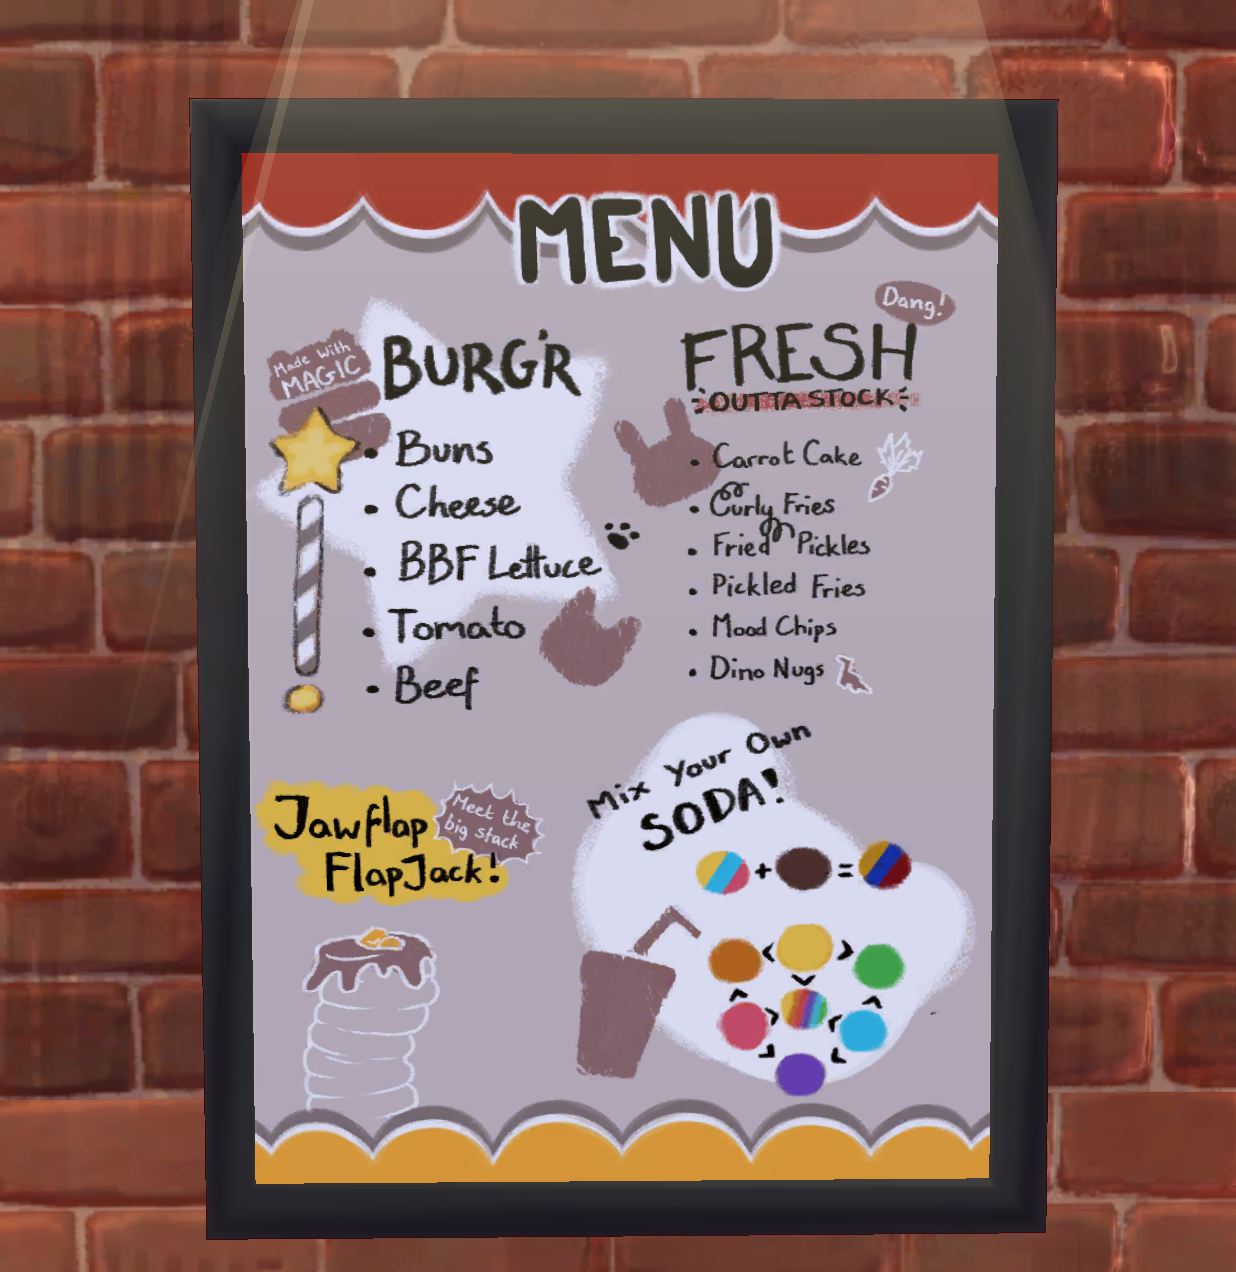 MENU
Made with
MAGIC
BURG'R
Buns
Cheese
BBF Lettuce
Tomato
Beef
Dang!
FRESH
OUTTA STOCK
Carrot Cake
Curly Fries
Fried Pickles
Pickled Fries
Mood Chips
Dino Nugs
Jawflap
FlapJack!
Meet the
big stack
Mix Your Own
SODA!
+ =